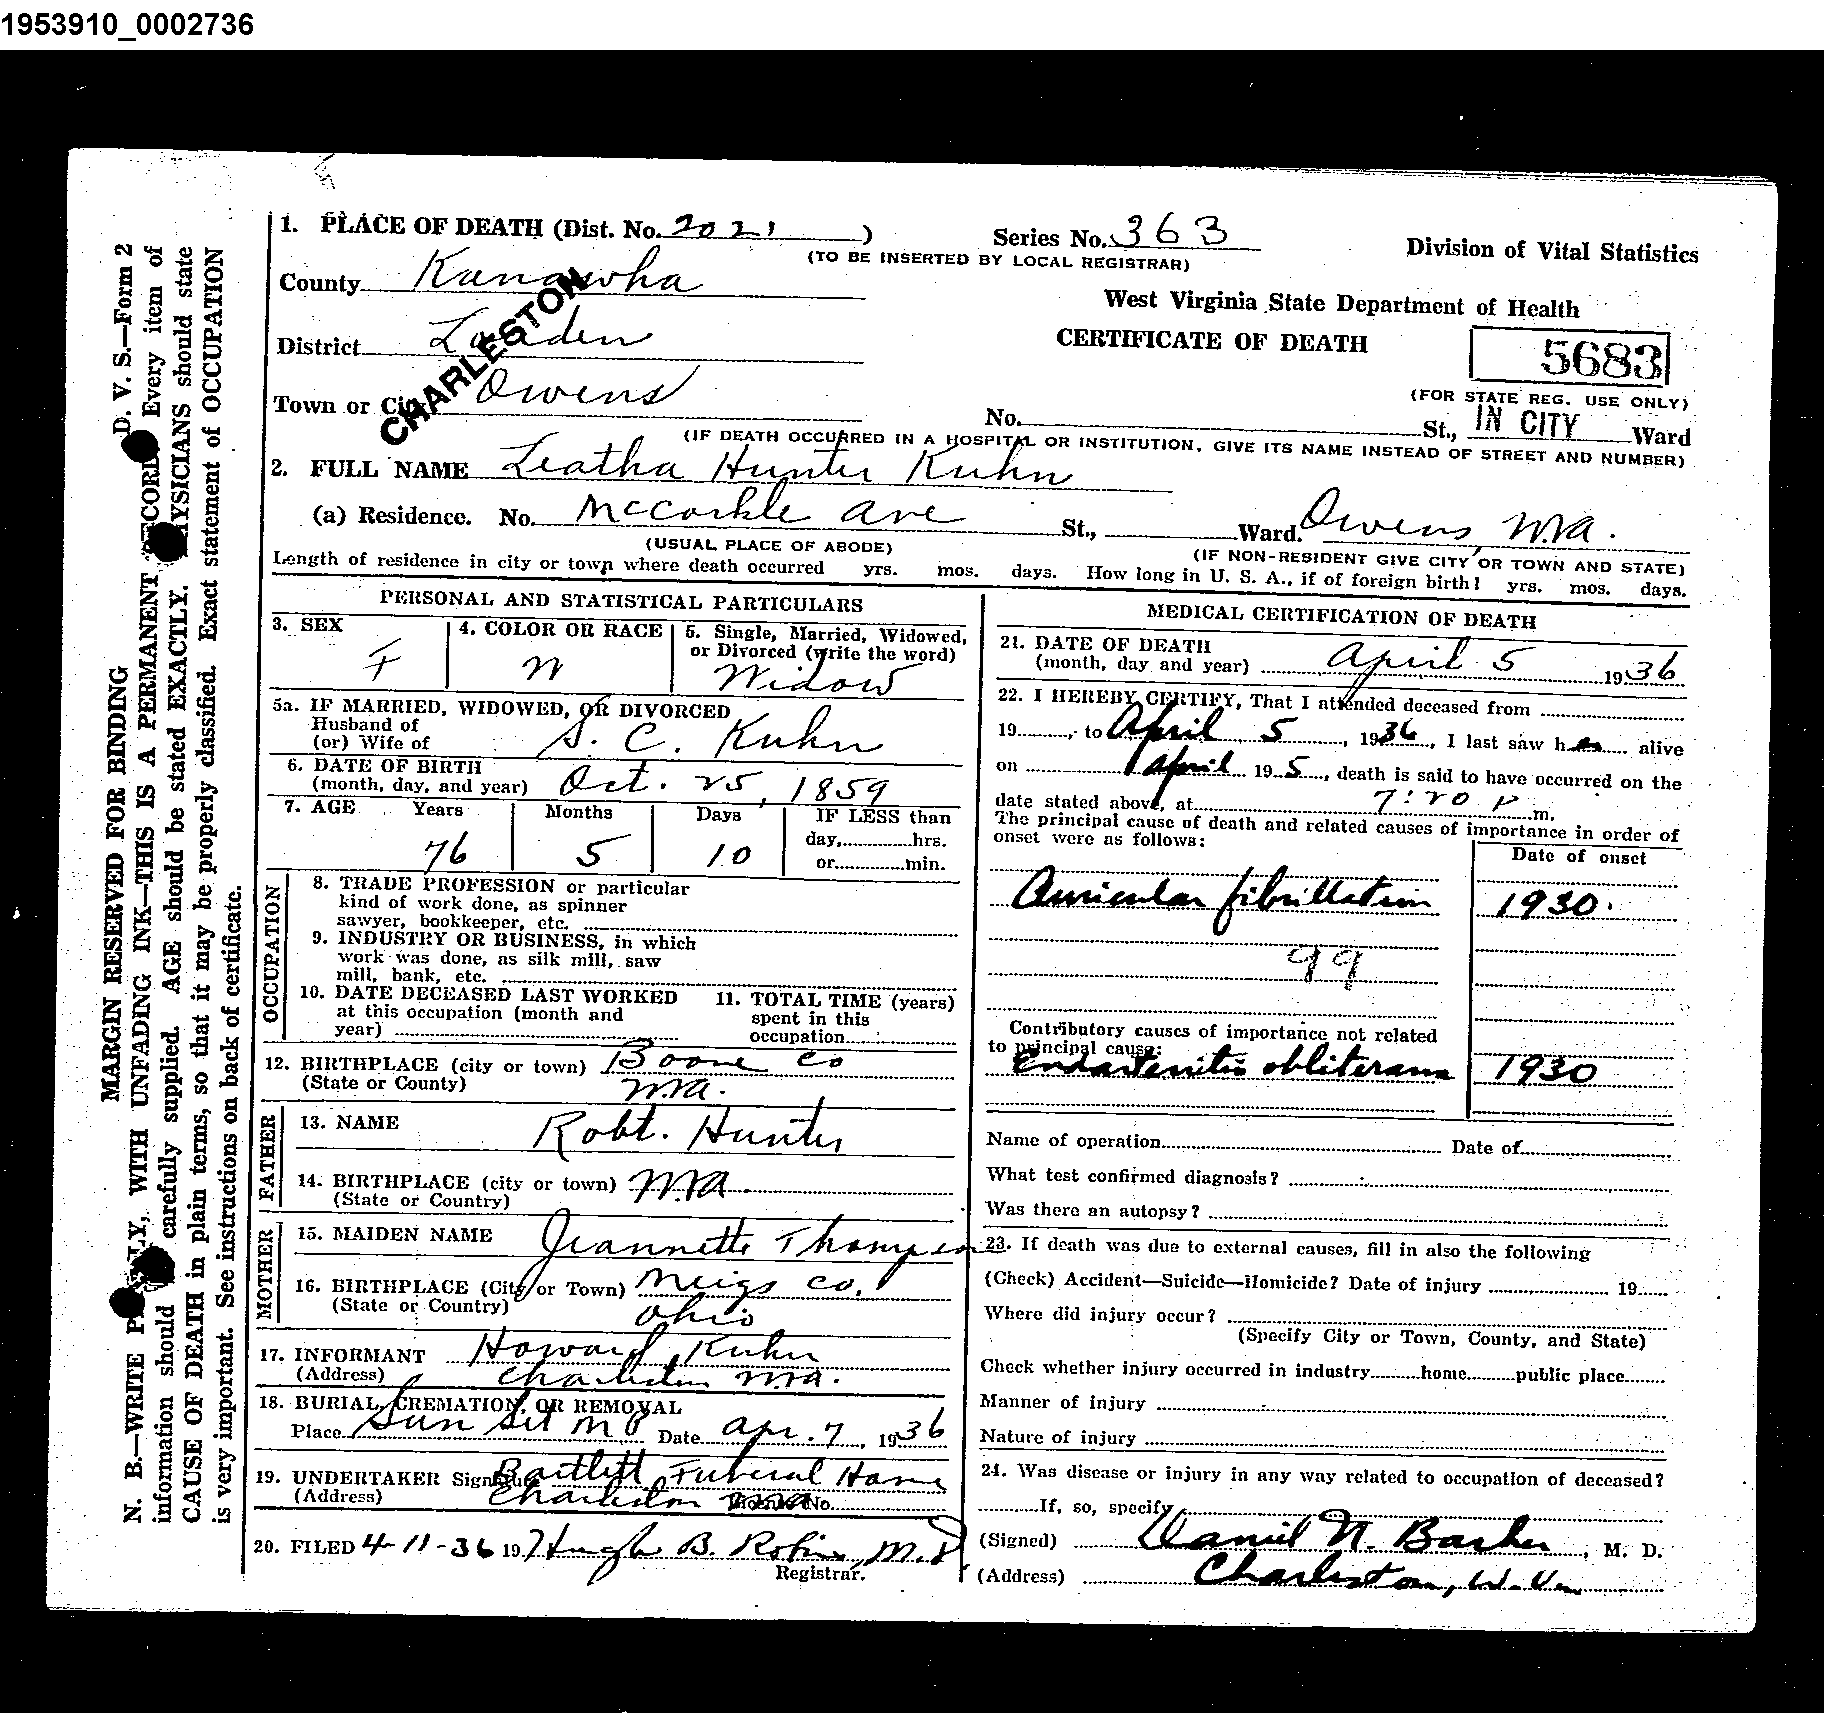 1953910_0002736
D. V. S.—Form 2
MARGIN RESERVED FOR BINDING
N. B.—WRITE PLAINLY, WITH UNFADING INK—THIS IS A PERMANENT RECORD. Every item of
information should be carefully supplied. AGE should be stated EXACTLY. PHYSICIANS should state
CAUSE OF DEATH in plain terms, so that it may be properly classified. Exact statement of OCCUPATION
is very important. See instructions on back of certificate.
1. PLACE OF DEATH (Dist. No. 2021 )
Series No. 363
(TO BE INSERTED BY LOCAL REGISTRAR)
Division of Vital Statistics
County Kanawha
West Virginia State Department of Health
CERTIFICATE OF DEATH
5683
(FOR STATE REG. USE ONLY)
District Louden
CHARLESTON
Town or City Owens
No. St., IN CITY Ward
(IF DEATH OCCURRED IN A HOSPITAL OR INSTITUTION, GIVE ITS NAME INSTEAD OF STREET AND NUMBER)
2. FULL NAME Leatha Hunter Kuhn
(a) Residence. No. McCorkle Ave St., Ward. Owens, W.Va.
(USUAL PLACE OF ABODE) (IF NON-RESIDENT GIVE CITY OR TOWN AND STATE)
Length of residence in city or town where death occurred yrs. mos. days. How long in U. S. A., if of foreign birth? yrs. mos. days.
PERSONAL AND STATISTICAL PARTICULARS
3. SEX
F
4. COLOR OR RACE
W
5. Single, Married, Widowed,
or Divorced (write the word)
Widow
5a. IF MARRIED, WIDOWED, OR DIVORCED
Husband of
(or) Wife of S. C. Kuhn
6. DATE OF BIRTH
(month, day, and year) Oct. 25, 1859
7. AGE Years Months Days IF LESS than
day, hrs.
or min.
76 5 10
OCCUPATION
8. TRADE PROFESSION or particular
kind of work done, as spinner
sawyer, bookkeeper, etc.
9. INDUSTRY OR BUSINESS, in which
work was done, as silk mill, saw
mill, bank, etc.
10. DATE DECEASED LAST WORKED
at this occupation (month and
year)
11. TOTAL TIME (years)
spent in this
occupation
12. BIRTHPLACE (city or town) Boone Co
(State or County) W.Va.
FATHER
13. NAME Robt. Hunter
14. BIRTHPLACE (city or town) W.Va.
(State or Country)
MOTHER
15. MAIDEN NAME Jeannette Thompson
16. BIRTHPLACE (City or Town) Meigs Co.
(State or Country) Ohio
17. INFORMANT Howard Kuhn
(Address) Charleston W.Va.
18. BURIAL, CREMATION, OR REMOVAL
Place Sun Set M P Date Apr. 7, 1936
19. UNDERTAKER Signature Bartlett Funeral Home
(Address) Charleston W.Va. License No.
20. FILED 4-11-36 19 Hugh B. Robins, M.D.
Registrar.
MEDICAL CERTIFICATION OF DEATH
21. DATE OF DEATH
(month, day and year) April 5 1936
22. I HEREBY CERTIFY, That I attended deceased from
19 , to April 5, 1936, I last saw her alive
on April 195, death is said to have occurred on the
date stated above, at 7:20 P m.
The principal cause of death and related causes of importance in order of
onset were as follows:
Date of onset
Auricular fibrillation 1930.
99
Contributory causes of importance not related
to principal cause:
Endarteritis obliterans 1930
Name of operation Date of
What test confirmed diagnosis?
Was there an autopsy?
23. If death was due to external causes, fill in also the following
(Check) Accident—Suicide—Homicide? Date of injury 19
Where did injury occur?
(Specify City or Town, County, and State)
Check whether injury occurred in industry home public place
Manner of injury
Nature of injury
24. Was disease or injury in any way related to occupation of deceased?
If, so, specify
(Signed) Daniel N. Barber, M. D.
(Address) Charleston, W. Va